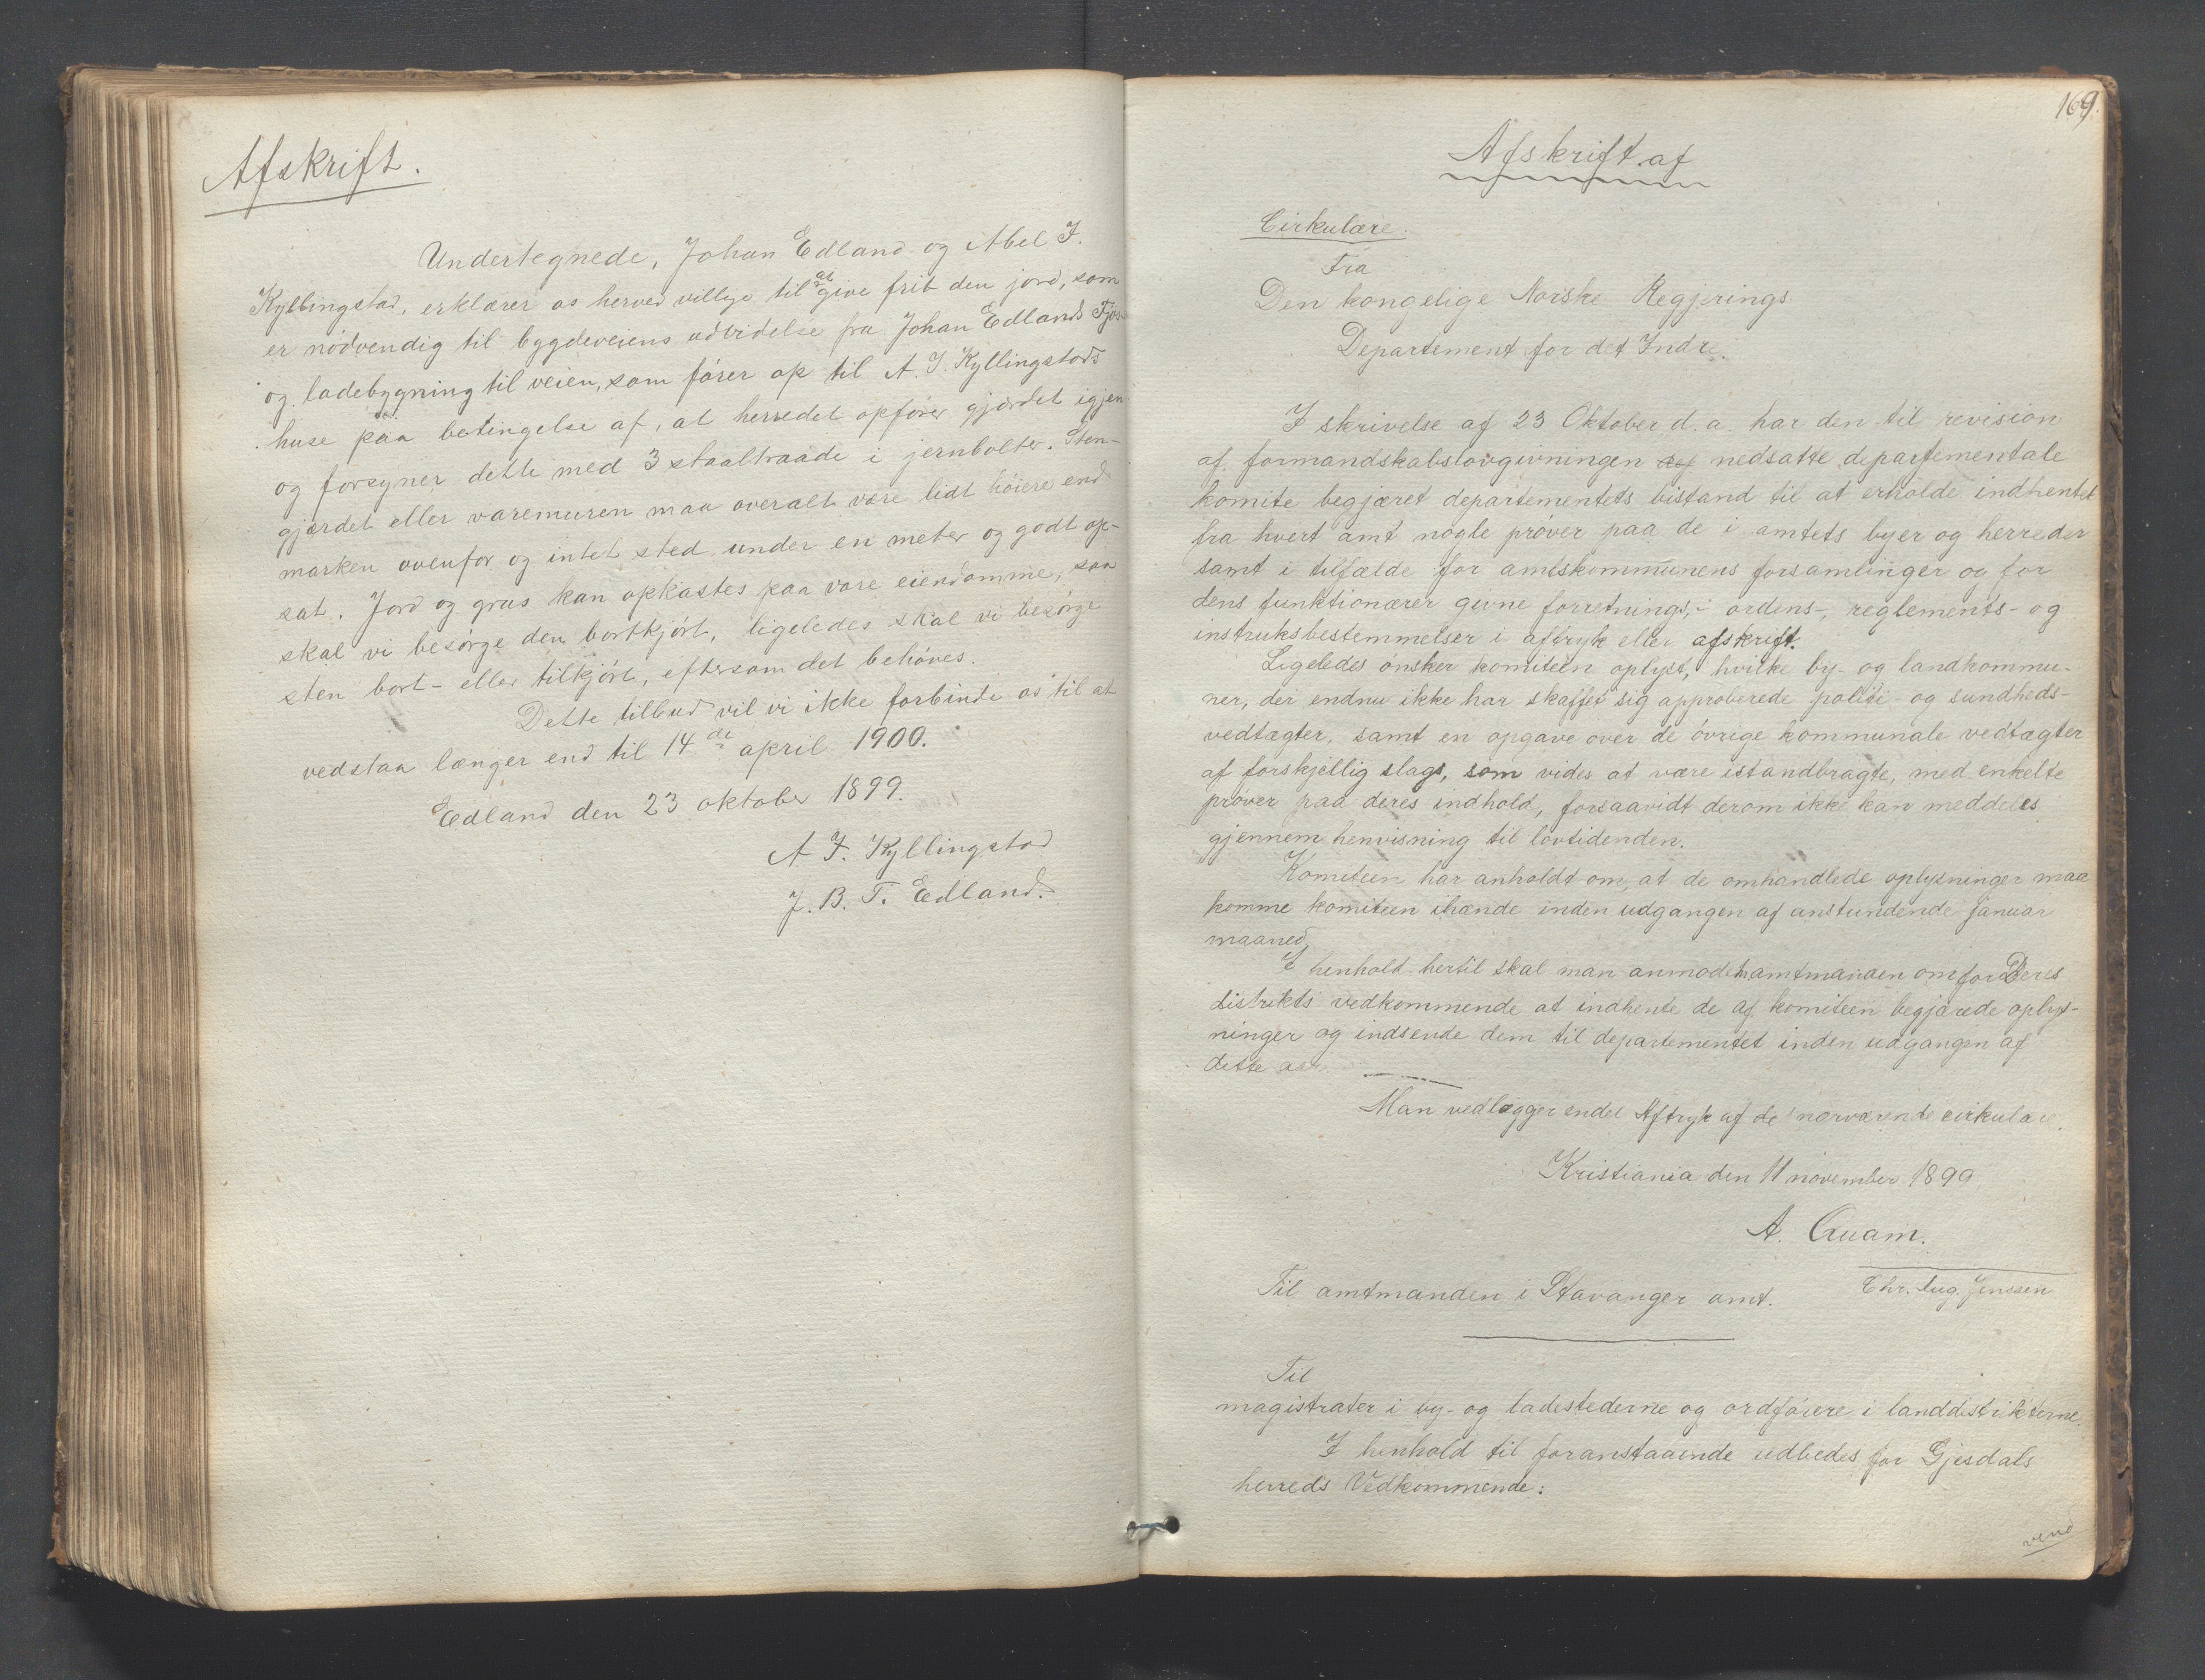 Afskrift.
Undertegnede, Johan Edland og Abel J.
Kyllingstad, erklærer os herved villige til at give frit den jord, som
er nødvendig til bygdeveiens udvidelse fra Johan Edlands Fjøs-
og ladebygning til veien, som fører op til A. J. Kyllingstads
huse paa betingelse af, at herredet opfører gjærdet igjen
og forsyner dette med 3 staaltraade i jernbolter. Sten-
gjærdet eller varemuren maa overalt være lidt høiere end
marken ovenfor og intet sted under en meter og godt op-
sat. Jord og grus kan opkastes paa vore eiendomme, saa
skal vi besørge den bortkjørt, ligeledes skal vi besørge
sten bort- eller tilkjørt, eftersom det behøves.
Dette tilbud vil vi ikke forbinde os til at
vedstaa længer end til 14de april 1900.
Edland den 23 oktober 1899.
A J. Kyllingstad
J. B. T. Edland.
169.
Afskrift af
Cirkulære.
Fra
Den kongelige Norske Regjerings
Departement for det Indre.
I skrivelse af 23 Oktober d. a. har den til revision
af formandskabslovgivningen nedsatte departementale
komite begjæret departementets bistand til at erholde indhentet
fra hvert amt nogle prøver paa de i amtets byer og herreder
samt i tilfælde for amtskommunens forsamlinger og for
dens funktionærer givne forretnings,- ordens-, reglements- og
instruksbestemmelser i aftryk eller afskrift.
Ligeledes ønsker komiteen oplyst, hvilke by- og landkommu-
ner, der endnu ikke har skaffet sig approberede politi- og sundheds-
vedtægter, samt en opgave over de øvrige kommunale vedtægter
af forskjellig slags, som vides at være istandbragte, med enkelte
prøver paa deres indhold, forsaavidt derom ikke kan meddeles
gjennem henvisning til lovtidenden.
Komiteen har anholdt om, at de omhandlede oplysninger maa
komme komiteen ihænde inden udgangen af anstundende januar
maaned.
I henhold hertil skal man anmode hr amtmanden om for Deres
distrikts vedkommende at indhente de af komiteen begjærede oplys-
ninger og indsende dem til departementet inden udgangen af
dette aar.
Man vedlægger endel Aftryk af de nærværende cirkulære.
Kristiania den 11 november 1899
A. Quam.
Chr. Aug. Jenssen
Til amtmanden i Stavanger amt.
Til
magistrater i by- og ladestederne og ordførere i landdistrikterne.
I henhold til foranstaaende udbedes for Gjesdals
herreds Vedkommende:
vend